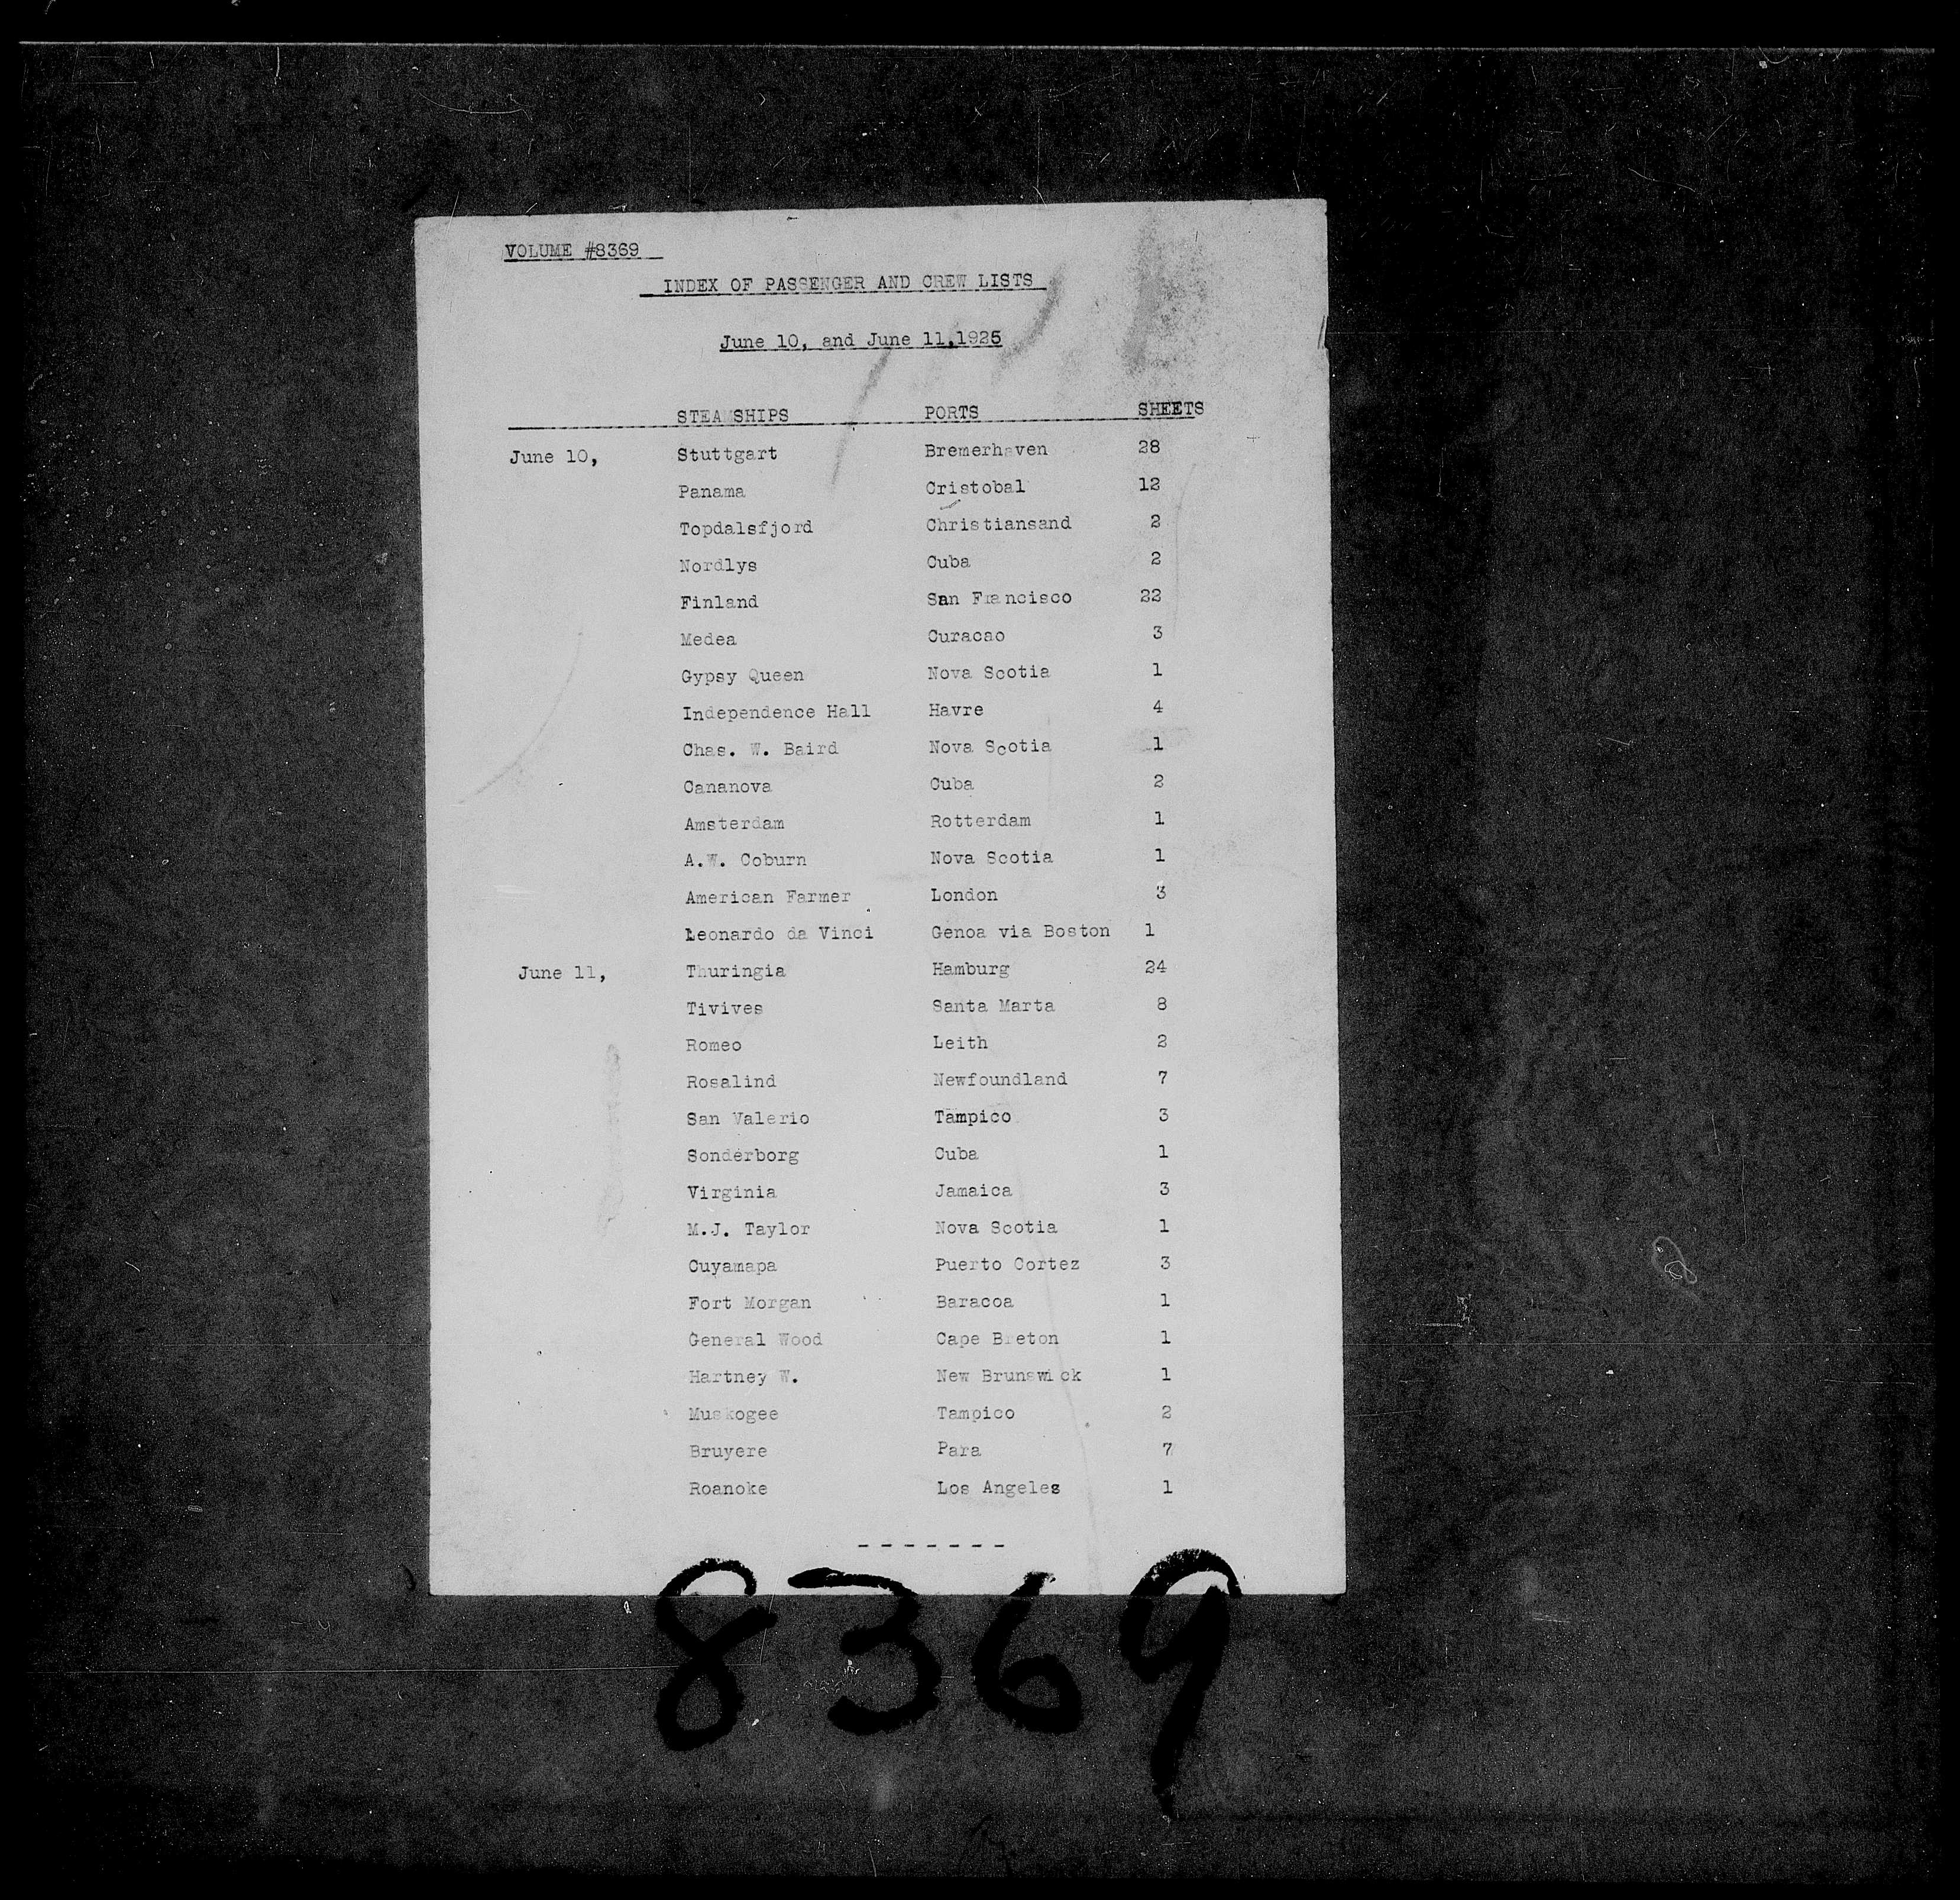 VOLUME #8369
INDEX OF PASSENGER AND CREW LISTS
June 10, and June 11, 1925
STEAMSHIPS PORTS SHEETS
June 10, Stuttgart Bremerhaven 28
Panama Cristobal 12
Topdalsfjord Christiansand 2
Nordlys Cuba 2
Finland San Francisco 22
Medea Curacao 3
Gypsy Queen Nova Scotia 1
Independence Hall Havre 4
Chas. W. Baird Nova Scotia 1
Cananova Cuba 2
Amsterdam Rotterdam 1
A.W. Coburn Nova Scotia 1
American Farmer London 3
Leonardo da Vinci Genoa via Boston 1
June 11, Thuringia Hamburg 24
Tivives Santa Marta 8
Romeo Leith 2
Rosalind Newfoundland 7
San Valerio Tampico 3
Sonderborg Cuba 1
Virginia Jamaica 3
M.J. Taylor Nova Scotia 1
Cuyamapa Puerto Cortez 3
Fort Morgan Baracoa 1
General Wood Cape Breton 1
Hartney W. New Brunswick 1
Muskogee Tampico 2
Bruyere Para 7
Roanoke Los Angeles 1
- - - - - - -
8369